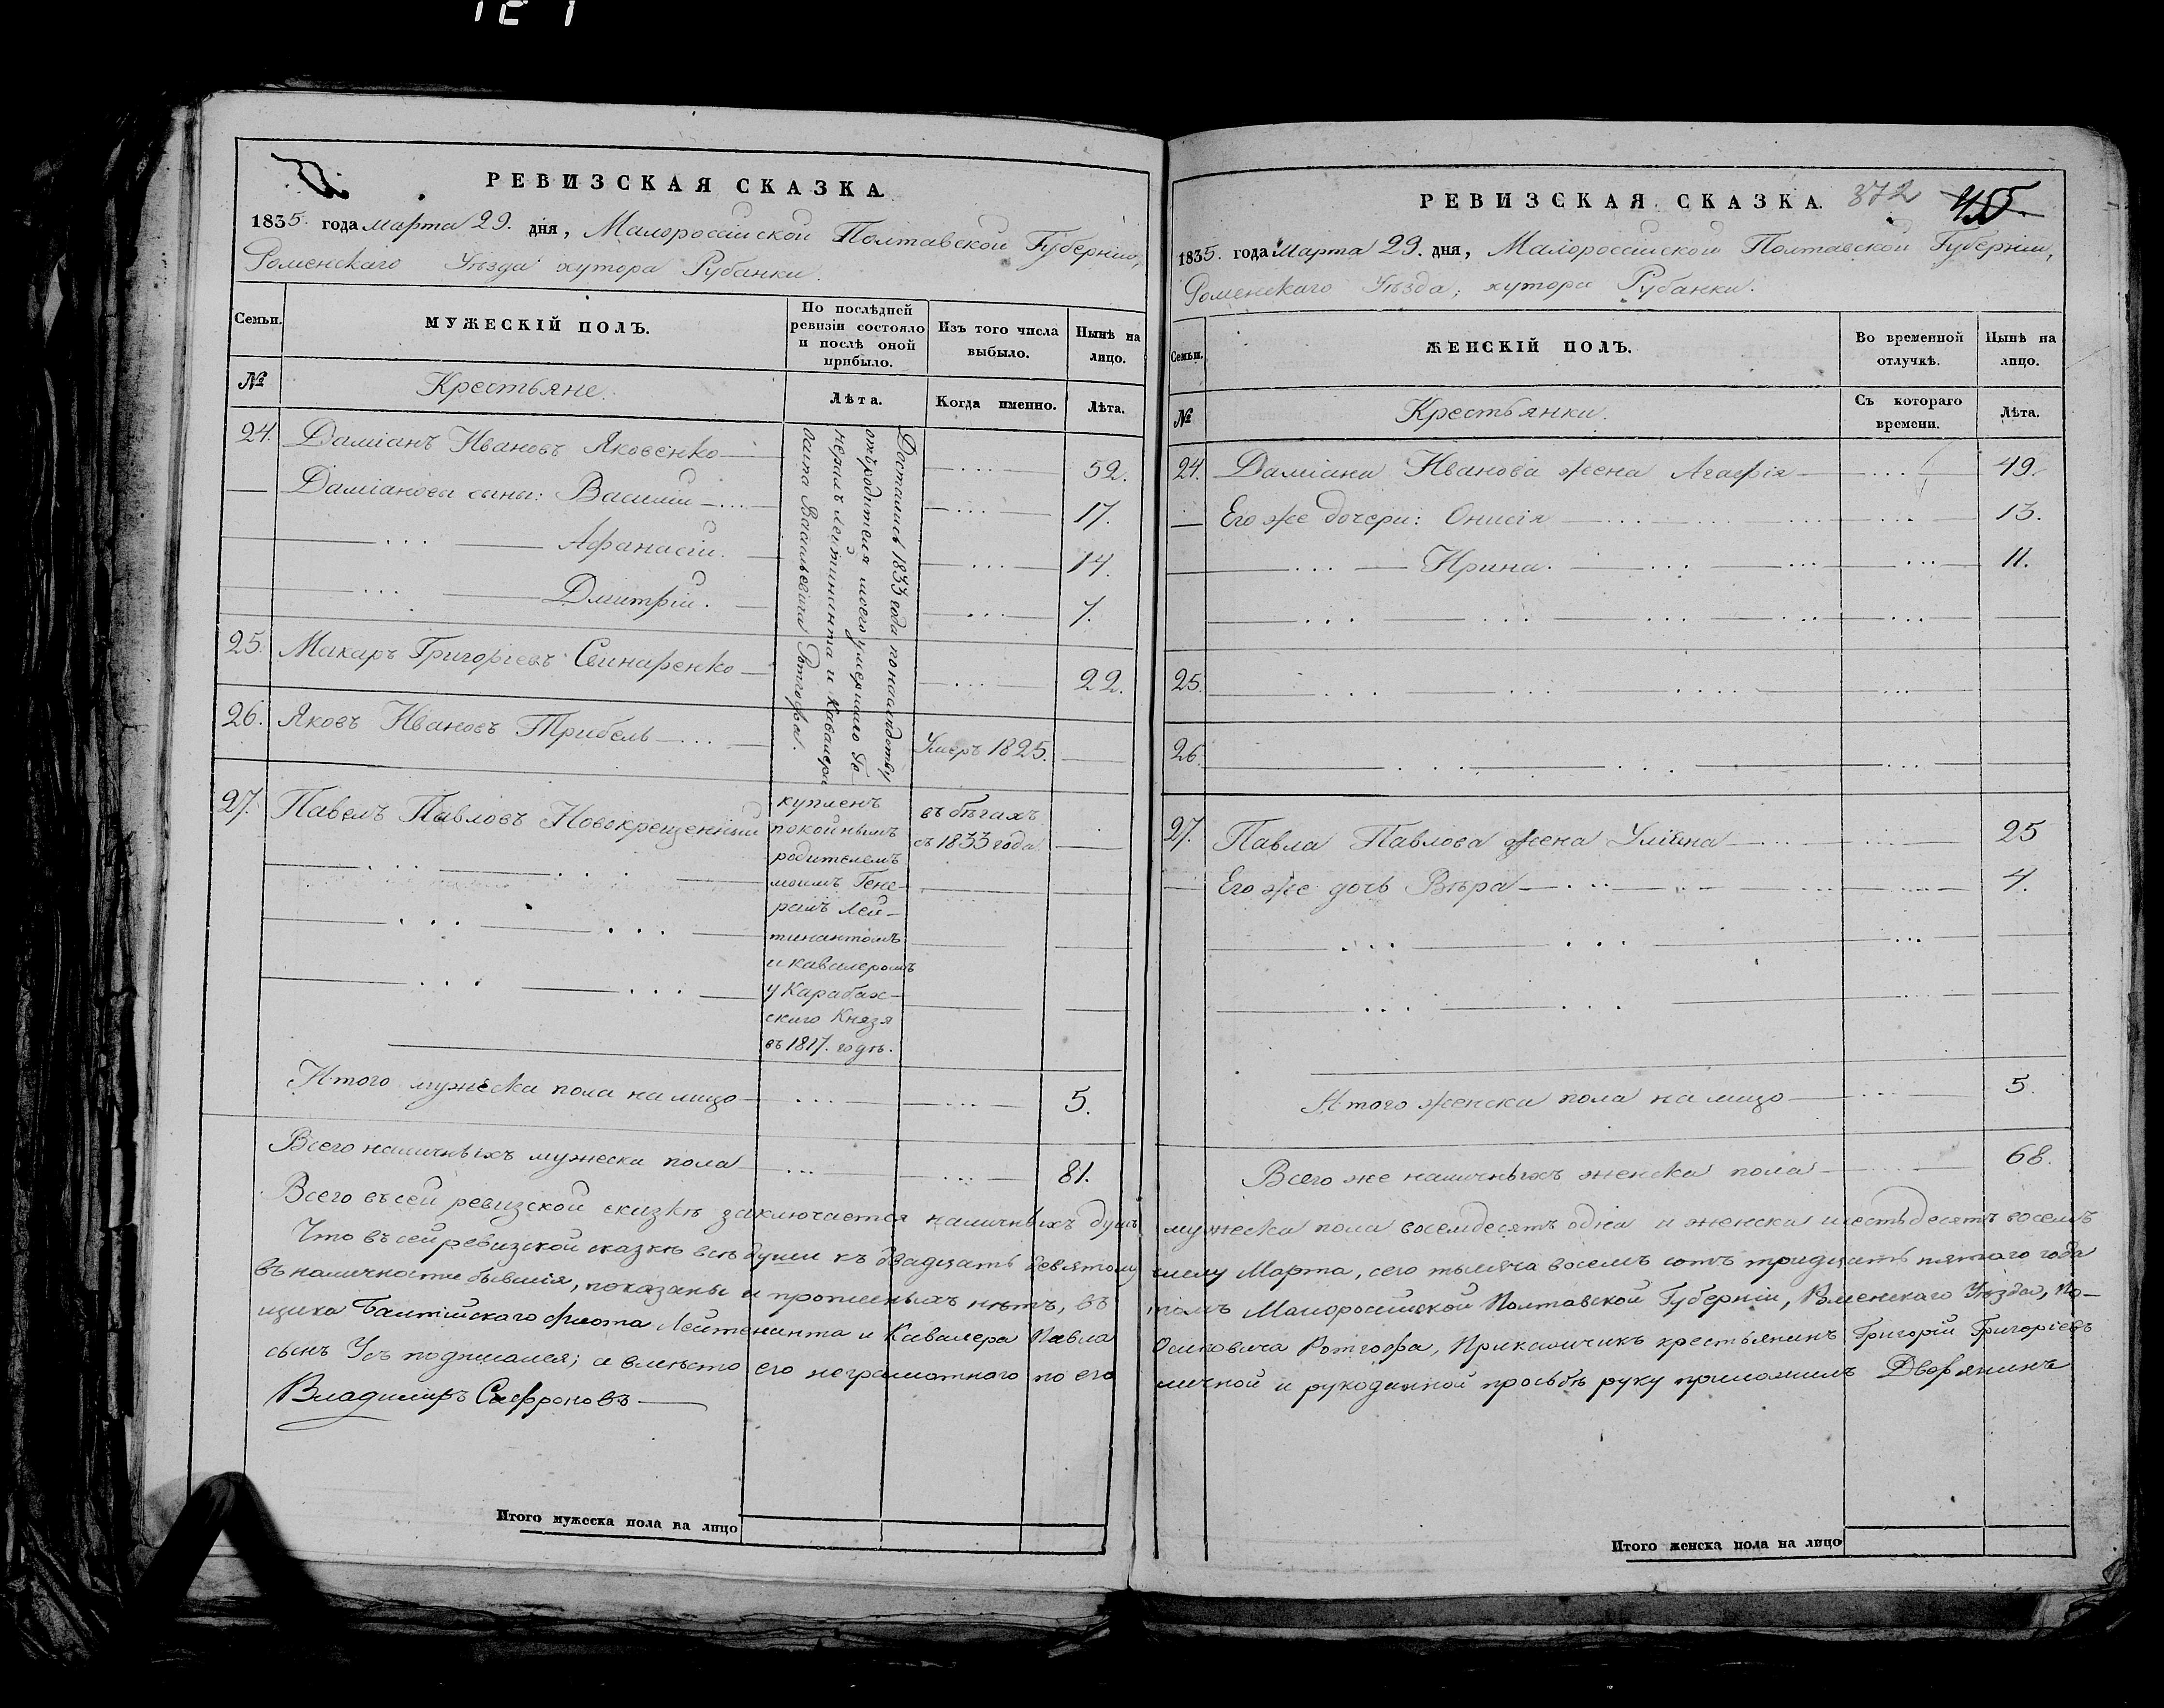 РЕВИЗСКАЯ СКАЗКА
1835. года марта 29. дня, Малороссійской Полтавской Губерніи,
Роменскаго Уѣзда хутора Рубанки.
Семьи.
МУЖЕСКІЙ ПОЛЪ.
По послѣдней ревизіи состояло и послѣ оной прибыло.
Изъ того числа выбыло.
Нынѣ на лицо.
№
Крестьяне.
Лѣта.
Когда именно.
Лѣта.
24. Даміанъ Ивановъ Яковенко 52.
Даміановы сыны: Василій 17.
Афанасій. 14.
Дмитрій. 7.
25. Макаръ Григорьевъ Свинаренко 22.
26. Яковъ Ивановъ Трибель Умеръ 1825.
Достались 1833 года по наслѣдству
отъ родителя моего умершаго Ге-
нералъ Лейтинанта и Кавалера
Осипа Васильевича Ротгофа.
27. Павелъ Павловъ Новокрещенный
купленъ
покойнымъ
родителемъ
моимъ Гене-
ралъ Лей-
тинантомъ
и кавалеромъ
у Карабах-
скаго Князя
въ 1817. годѣ.
въ бѣгахъ
съ 1833 года
Итого мужеска пола на лицо 5.
Всего наличныхъ мужеска пола 81.
РЕВИЗСКАЯ СКАЗКА. 372
1835. года Марта 29. дня, Малороссійской Полтавской Губерніи,
Роменскаго Уѣзда, хутора Рубанки.
Семьи.
ЖЕНСКІЙ ПОЛЪ.
Во временной отлучкѣ.
Нынѣ на лицо.
№
Крестьянки.
Съ котораго времени.
Лѣта.
24. Даміана Иванова жена Агафія 49.
Его же дочери: Онисія 13.
Ирина. 11.
25.
26.
27. Павла Павлова жена Уліяна 25
Его же дочь Вѣра 4.
Итого женска пола на лицо 5.
Всего же наличныхъ женска пола 68.
Всего въ сей ревизской сказкѣ заключается наличныхъ душъ мужеска пола восемдесятъ одна и женска шестьдесятъ восемъ
Что въ сей ревизской сказкѣ всѣ души къ двадцать девятому числу Марта, сего тысяча восемъ сотъ тридцать пятаго года
въ наличности бывшія, показаны и прописныхъ нѣтъ, въ томъ Малороссійской Полтавской Губерніи, Роменскаго Уѣзда, По-
щика Балтійскаго флота Лейтенанта и Кавалера Павла Осиповича Ротгофа, Прикащикъ крестьянинъ Григорій Григорьевъ
сынъ Усъ подписался; а вмѣсто его неграмотнаго по его личной и рукоданной просьбѣ руку приложилъ Дворянинъ
Владимиръ Сафроновъ
Итого мужеска пола на лицо
Итого женска пола на лицо